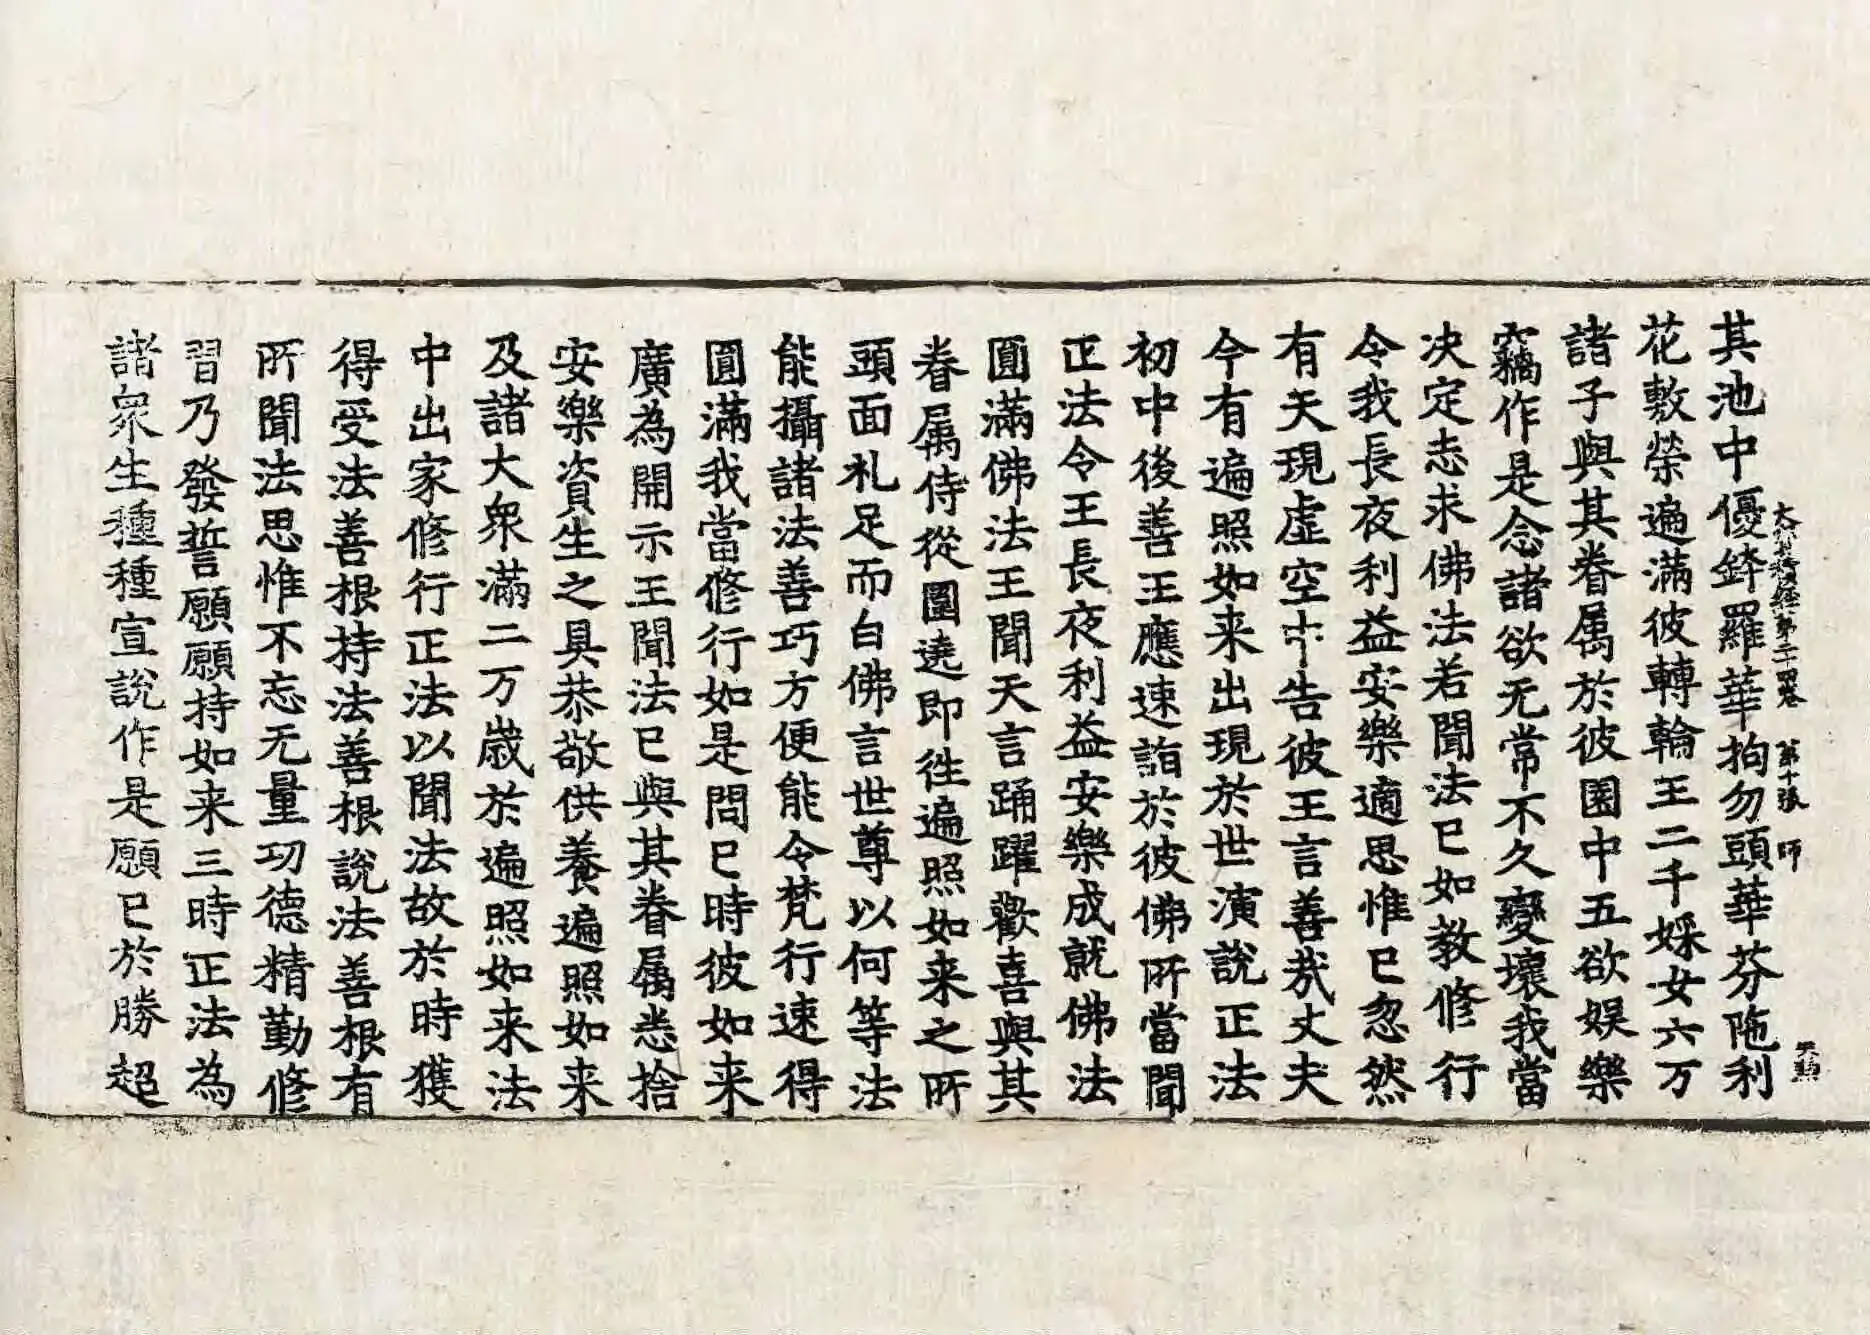 大寶積經第二十四卷　第十張　師
其池中優鉢羅華拘勿頭華芬陁利
花敷榮遍滿彼轉輪王二千婇女六万
諸子與其眷属於彼園中五欲娯樂
竊作是念諸欲无常不久變壞我當
决定志求佛法若聞法已如教修行
令我長夜利益安樂適思惟已忽然
有天現虛空中告彼王言善㢤丈夫
今有遍照如来出現於世演說正法
初中後善王應速詣於彼佛所當聞
正法令王長夜利益安樂成就佛法
圓滿佛法王聞天言踊躍歡喜與其
眷属侍從圍遶即徃遍照如来之所
頭面礼足而白佛言世尊以何等法
能攝諸法善巧方便能令梵行速得
圓滿我當修行如是問已時彼如来
廣為開示王聞法已與其眷属悉捨
安樂資生之具恭敬供養遍照如来
及諸大衆滿二万歲於遍照如来法
中出家修行正法以聞法故於時獲
得受法善根持法善根說法善根有
所聞法思惟不忘无量功德精勤修
習乃發誓願願持如来三時正法為
諸衆生種種宣說作是願已於勝超